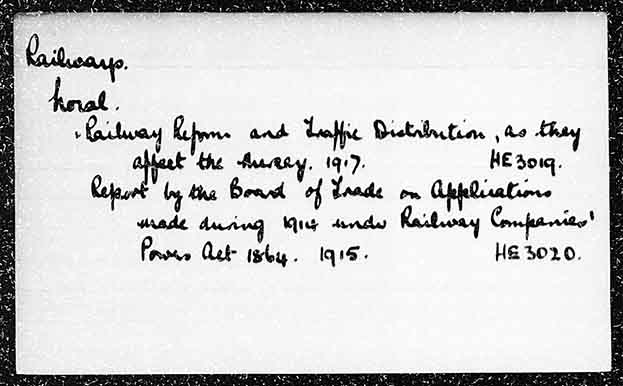 Railways.
Local.
Railway Reform and Traffic Distribution, as they
affect the Mersey. 1917. HE3019.
Report by the Board of Trade on Applications
made during 1914 under Railway Companies'
Powers Act 1864. 1915. HE3020.